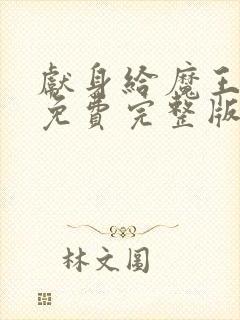 獻身給魔王
免費完整版
林文圓